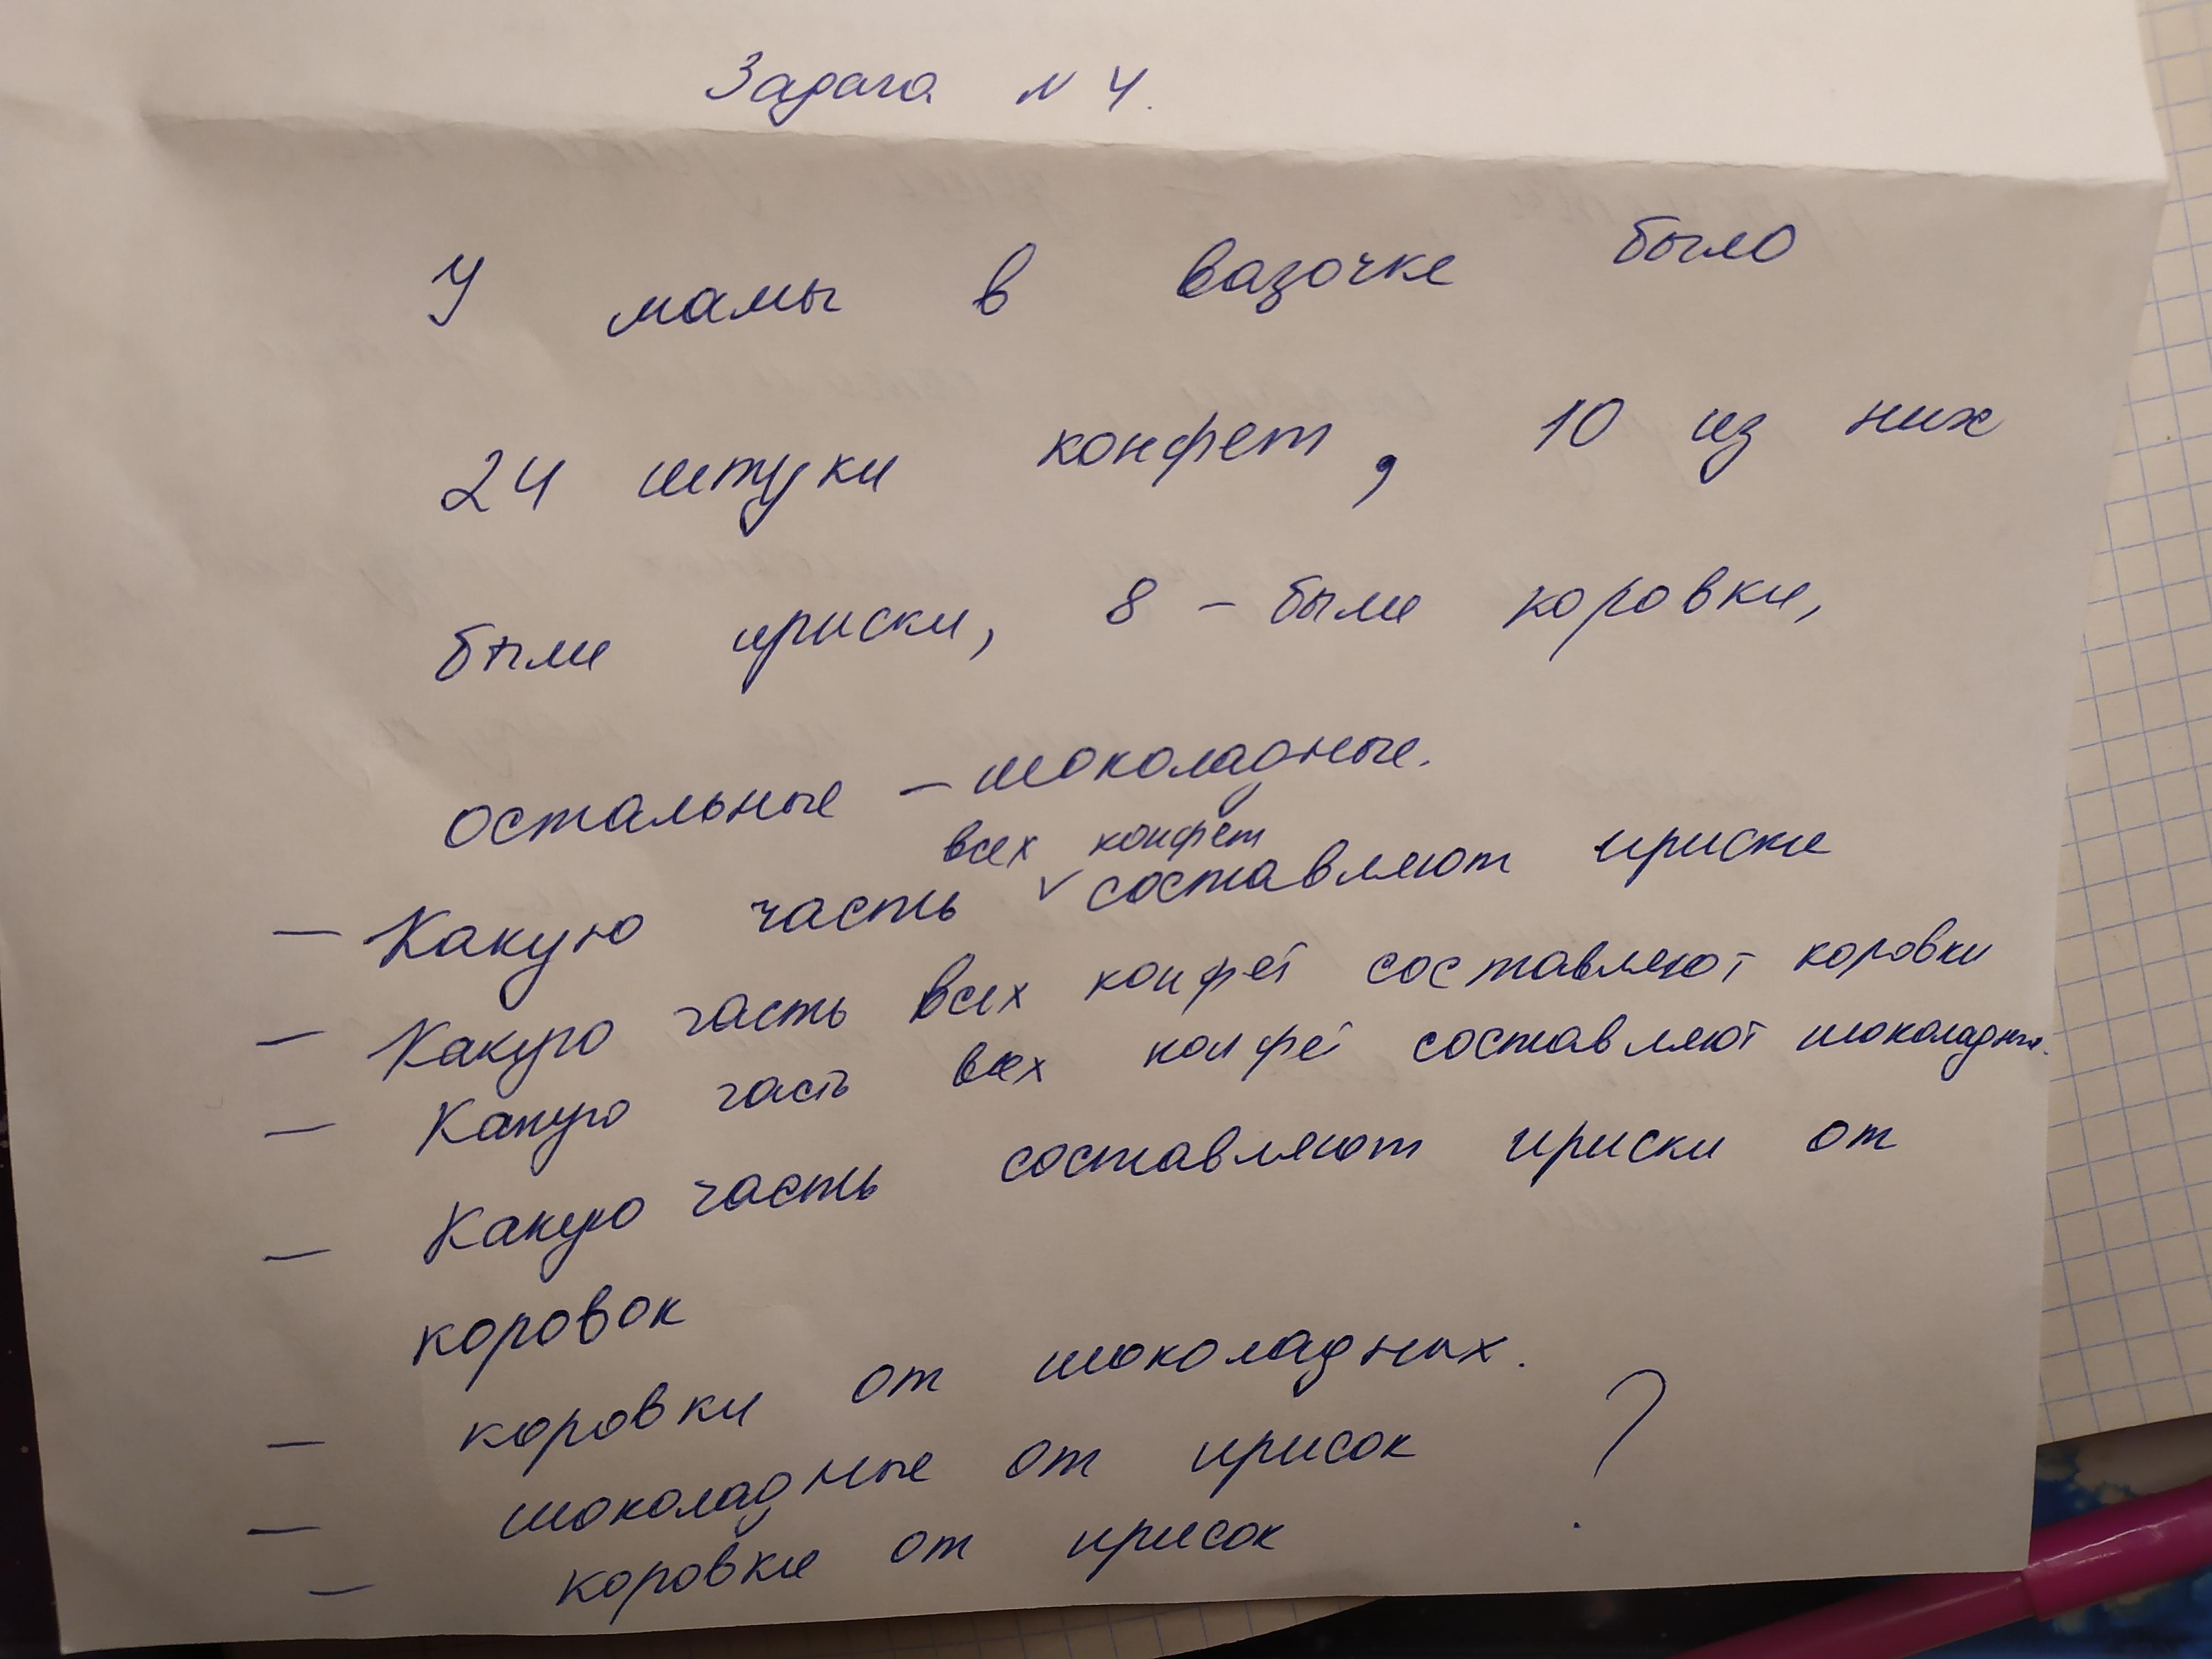 Задача N 4.
У мамы в вазочке было
24 штуки конфет, 10 из них
были ириски, 8 - были коровки,
остальные - шоколадные.
всех конфет
- Какую часть ✓ составляют ириски
- Какую часть всех конфет составляют коровки
- Какую часть всех конфет составляют шоколадные.
- Какую часть составляют ириски от
коровок
- коровки от шоколадных.
- шоколадные от ирисок ?
- коровки от ирисок